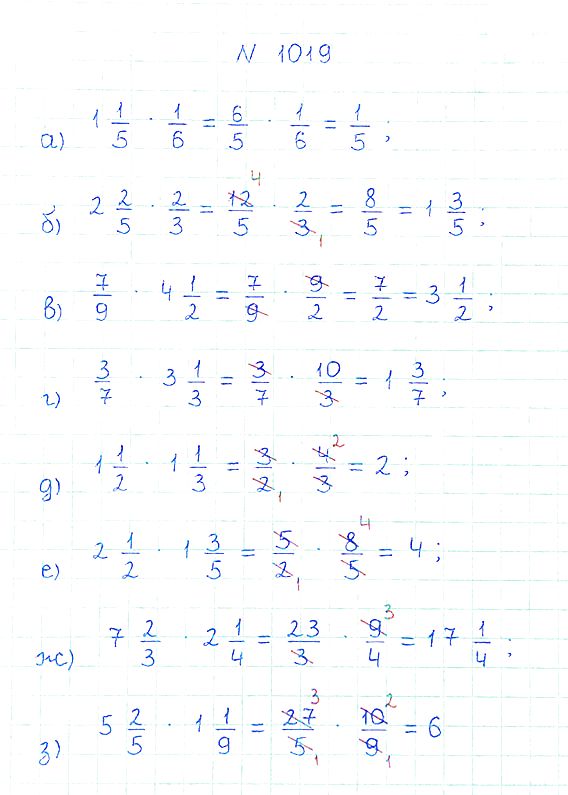 N 1019
а) 1 1/5 · 1/6 = 6/5 · 1/6 = 1/5 ;
б) 2 2/5 · 2/3 = 12/5 4 · 2/3 1 = 8/5 = 1 3/5 ;
в) 7/9 · 4 1/2 = 7/9 · 9/2 = 7/2 = 3 1/2 ;
г) 3/7 · 3 1/3 = 3/7 · 10/3 = 1 3/7 ;
д) 1 1/2 · 1 1/3 = 3/2 1 · 4/3 2 = 2 ;
е) 2 1/2 · 1 3/5 = 5/2 1 · 8/5 4 = 4 ;
ж) 7 2/3 · 2 1/4 = 23/3 · 9/4 3 = 17 1/4 ;
з) 5 2/5 · 1 1/9 = 27/5 3 1 · 10/9 2 1 = 6